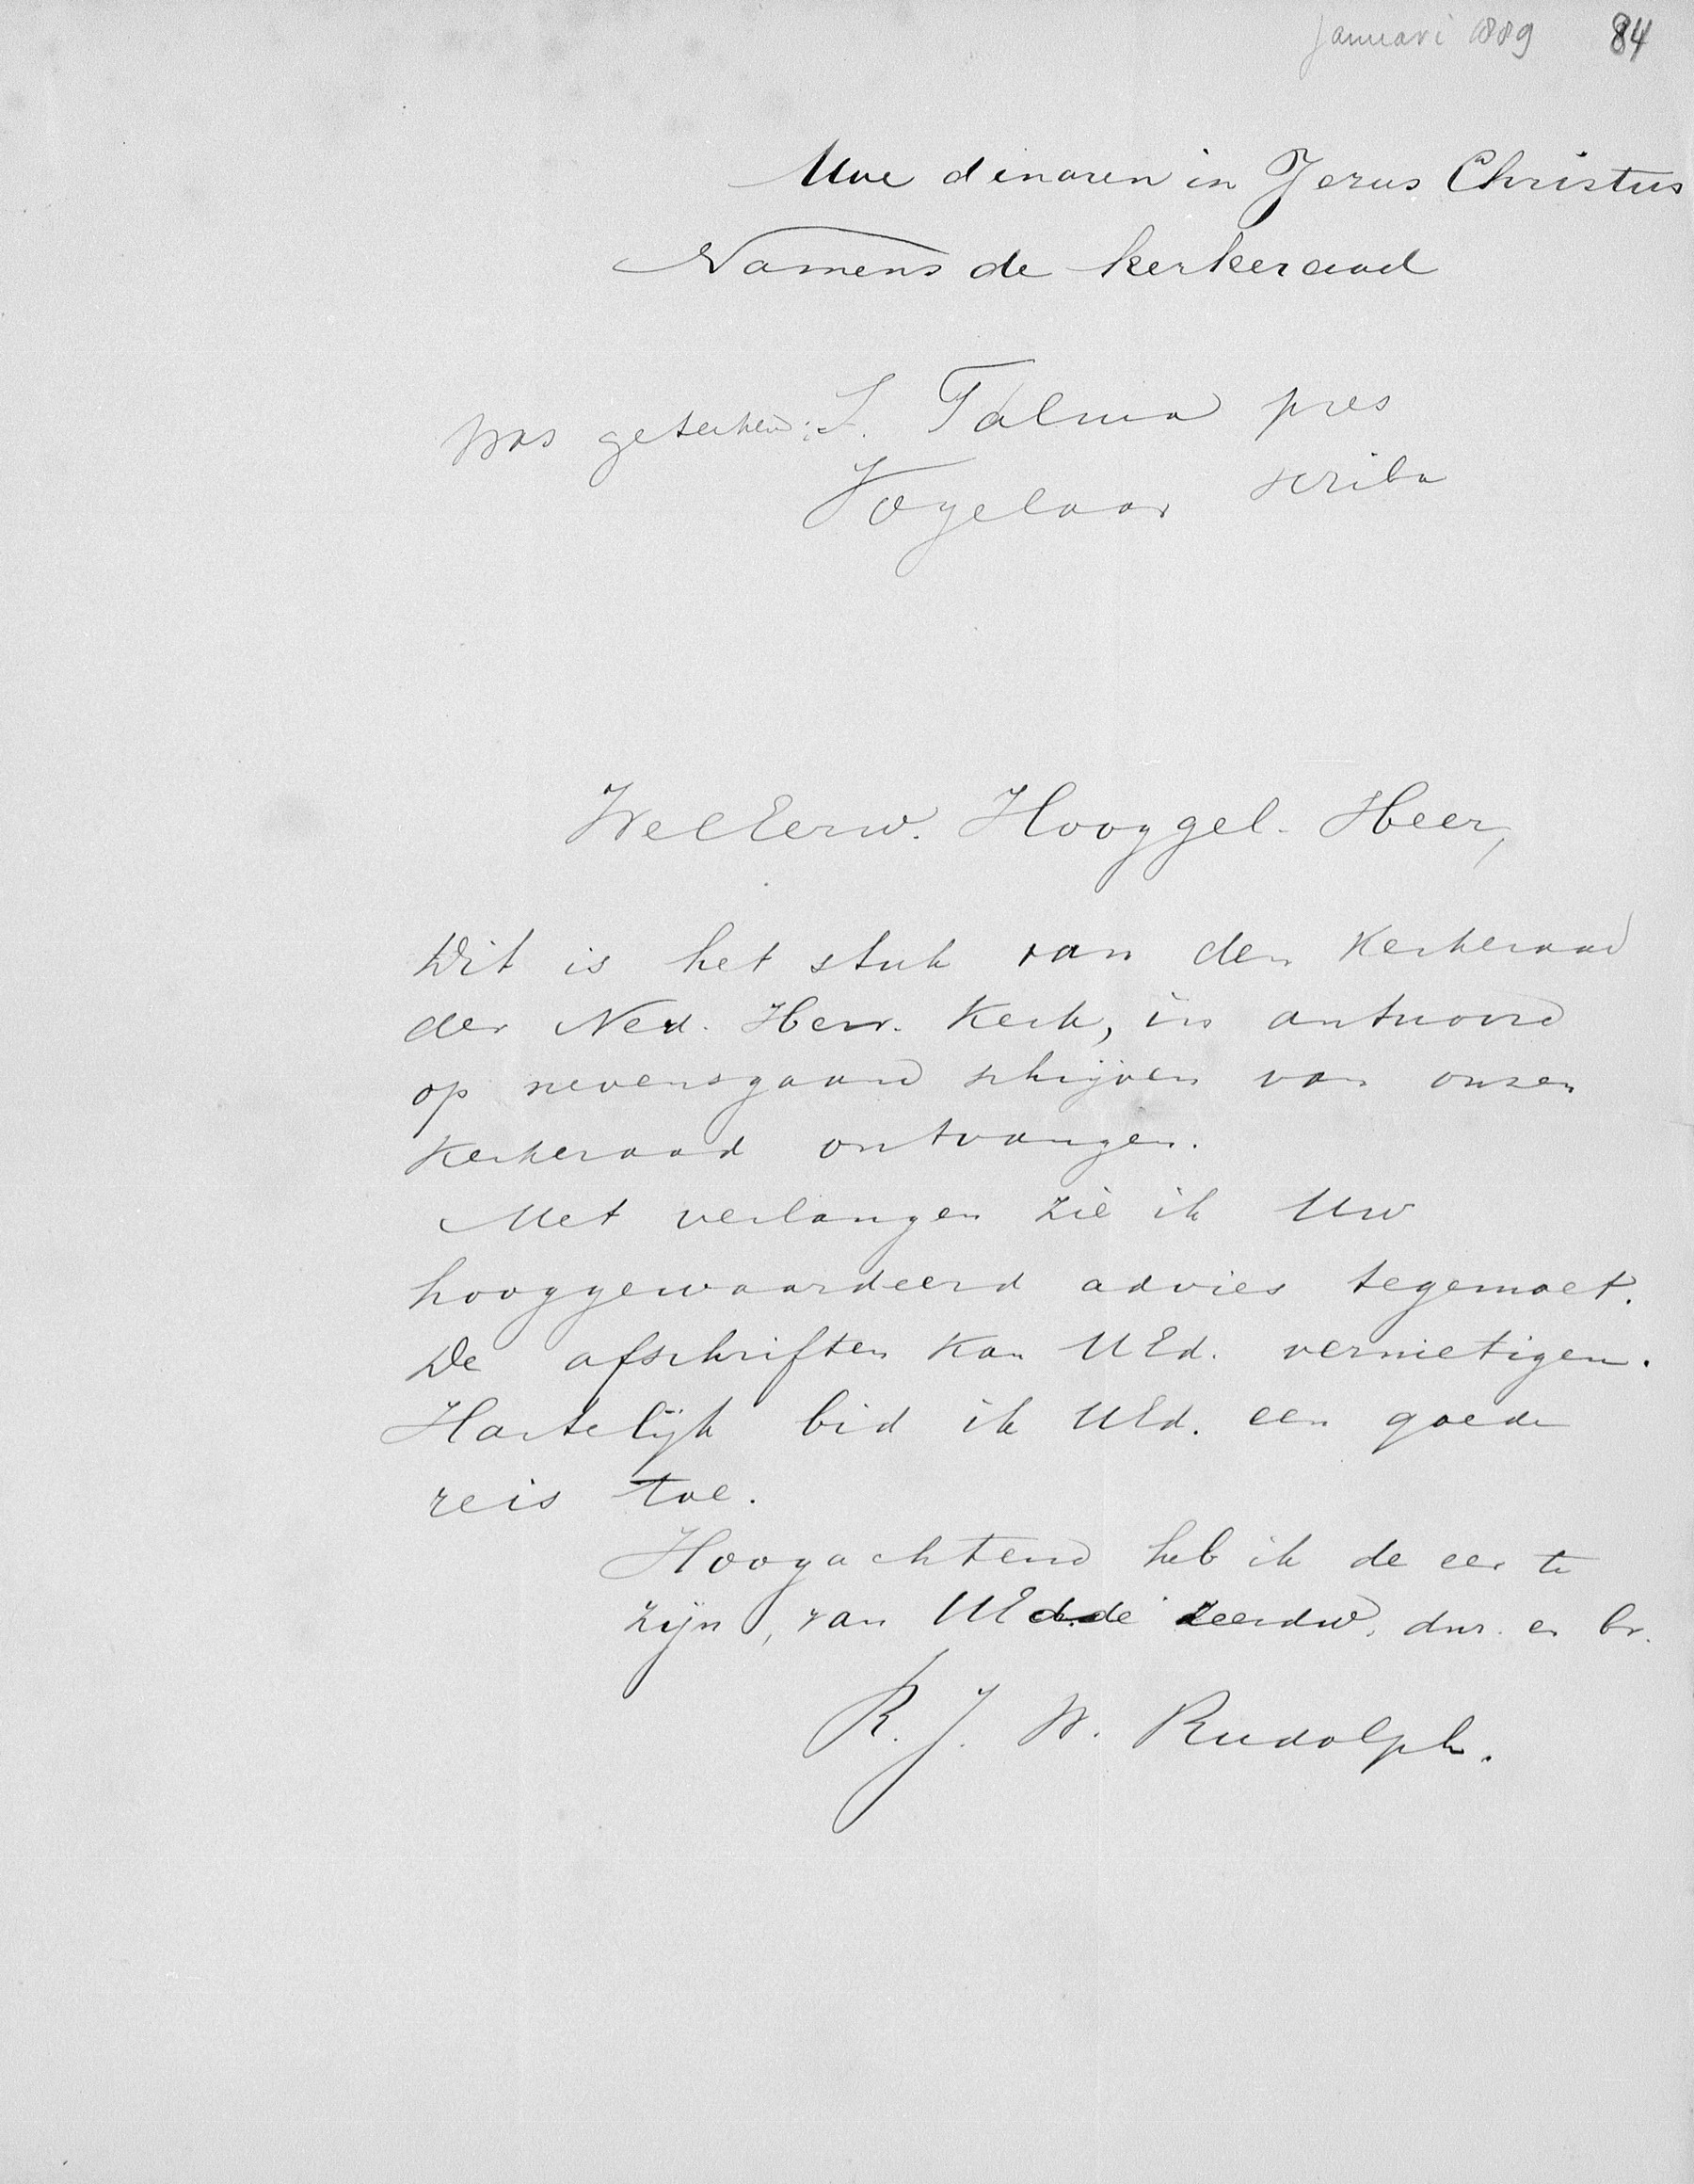 Januari 1889 84
Uwe dinaren in Jezus Christus
Namens de kerkeraad
was geteekend: S. Talma pres
Vogelaar scriba
WelEerw. Hooggel. Heer,
Dit is het stuk van den Kerkeraad
der Ned. Herv. Kerk, in antwoord
op nevensgaand schrijven van onzen
Kerkeraad ontvangen.
Met verlangen zie ik Uw
hooggewaardeerd advies tegemoet.
De afschriften kan UEd. vernietigen.
Hartelijk bid ik UEd. een goede
reis toe.
Hoogachtend heb ik de eer te
zijn, van UEd. de dw. dnr. en br.
R. J. W. Rudolph.